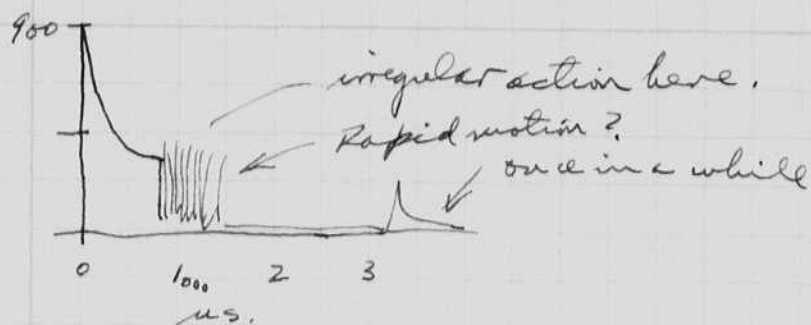 900
irregular action here.
Rapid motion?
once in a while
0 1000 2 3
us.